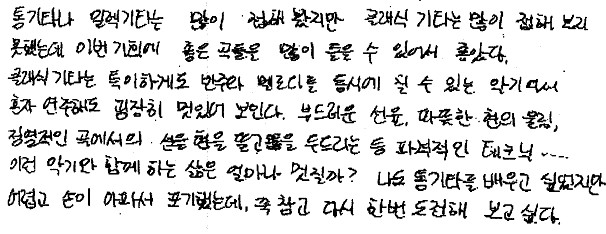 통기타나 일렉기타는 많이 접해 봤지만 클래식 기타는 많이 접해 보지
못했는데 이번 기회에 좋은 곡들을 많이 들을 수 있어서 좋았다.
클래식 기타는 특이하게도 반주와 멜로디를 동시에 칠 수 있는 악기여서
혼자 연주해도 굉장히 멋있어 보인다. 부드러운 선율, 따뜻한 현의 울림,
정열적인 곡에서의 현을 뜯고 두드리는 등 파격적인 테크닉.....
이런 악기와 함께 하는 삶은 얼마나 멋질까? 나도 통기타를 배우고 싶었지만
어렵고 손이 아파서 포기했는데, 꾹 참고 다시 한번 도전해 보고 싶다.